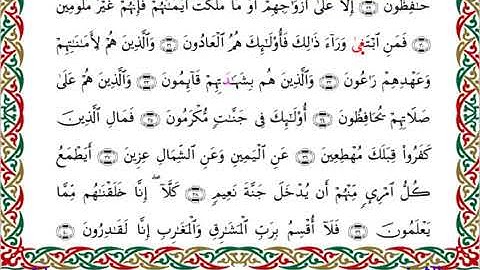 حَافِظُونَ ۝ إِلَّا عَلَىٰ أَزْوَاجِهِمْ أَوْ مَا مَلَكَتْ أَيْمَانُهُمْ فَإِنَّهُمْ غَيْرُ مَلُومِينَ
۝ فَمَنِ ٱبْتَغَىٰ وَرَآءَ ذَٰلِكَ فَأُو۟لَٰٓئِكَ هُمُ ٱلْعَادُونَ ۝ وَٱلَّذِينَ هُمْ لِأَمَٰنَٰتِهِمْ
وَعَهْدِهِمْ رَاعُونَ ۝ وَٱلَّذِينَ هُم بِشَهَٰدَٰتِهِمْ قَآئِمُونَ ۝ وَٱلَّذِينَ هُمْ عَلَىٰ
صَلَاتِهِمْ يُحَافِظُونَ ۝ أُو۟لَٰٓئِكَ فِى جَنَّٰتٍ مُّكْرَمُونَ ۝ فَمَالِ ٱلَّذِينَ
كَفَرُوا۟ قِبَلَكَ مُهْطِعِينَ ۝ عَنِ ٱلْيَمِينِ وَعَنِ ٱلشِّمَالِ عِزِينَ ۝ أَيَطْمَعُ
كُلُّ ٱمْرِئٍ مِّنْهُمْ أَن يُدْخَلَ جَنَّةَ نَعِيمٍ ۝ كَلَّآ ۖ إِنَّا خَلَقْنَٰهُم مِّمَّا
يَعْلَمُونَ ۝ فَلَآ أُقْسِمُ بِرَبِّ ٱلْمَشَٰرِقِ وَٱلْمَغَٰرِبِ إِنَّا لَقَٰدِرُونَ ۝